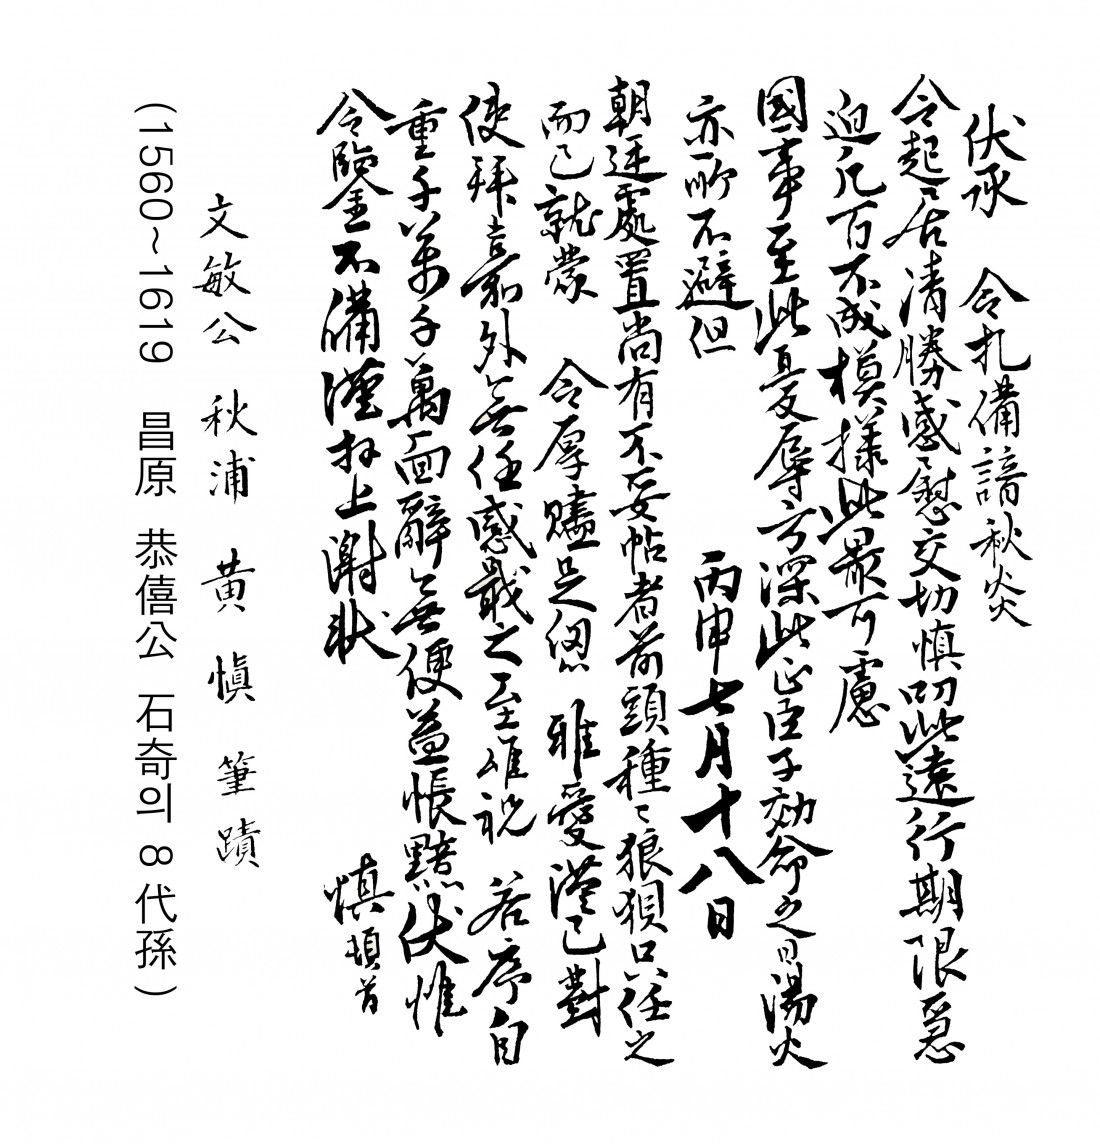 伏承 令札備諳秋炎
令起居清勝感慰交切慎叨此遠行期限急
迫凡百不成模樣此最可慮
國事至此憂辱方深此正臣子効命之日湯火
亦所不避但 丙申七月十八日
朝廷處置尚有不妥帖者前頭種〻狼狽只任之
而已就蒙 令厚賮足認 雅愛謹已對
使拜嘉外無任感戢之至唯祝 若序自
重千萬千萬面辭無便益悵黯伏惟
令鑒不備謹拜上謝狀 慎頓首
文敏公 秋浦 黃愼 筆蹟
(1560~1619 昌原 恭僖公 石奇의 8代孫)